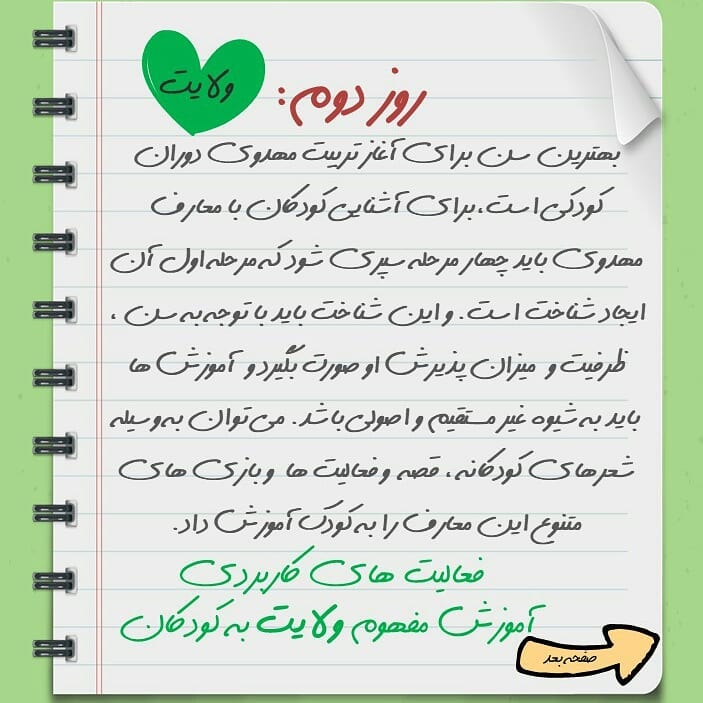 ولایت
روز دوم:
بهترین سن برای آغاز تربیت مهدوی دوران
کودکی است، برای آشنایی کودکان با معارف
مهدوی باید چهار مرحله سپری شود که مرحله اول آن
ایجاد شناخت است. و این شناخت باید با توجه به سن ،
ظرفیت و میزان پذیرش او صورت بگیرد و آموزش ها
باید به شیوه غیر مستقیم و اصولی باشد. می توان به وسیله
شعرهای کودکانه ، قصه و فعالیت ها و بازی های
متنوع این معارف را به کودک آموزش داد.
فعالیت های کاربردی
آموزش مفهوم ولایت به کودکان
صفحه بعد